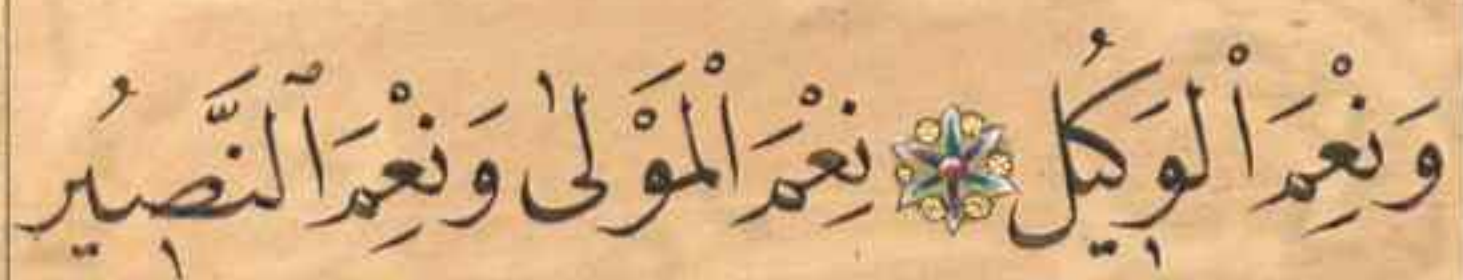 وَنِعْمَ الْوَكِيلُ نِعْمَ الْمَوْلٰى وَنِعْمَ النَّصِيرُ